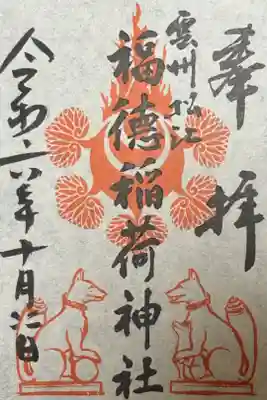 奉拝
雲州松江
福徳稲荷神社
令和六年十月日